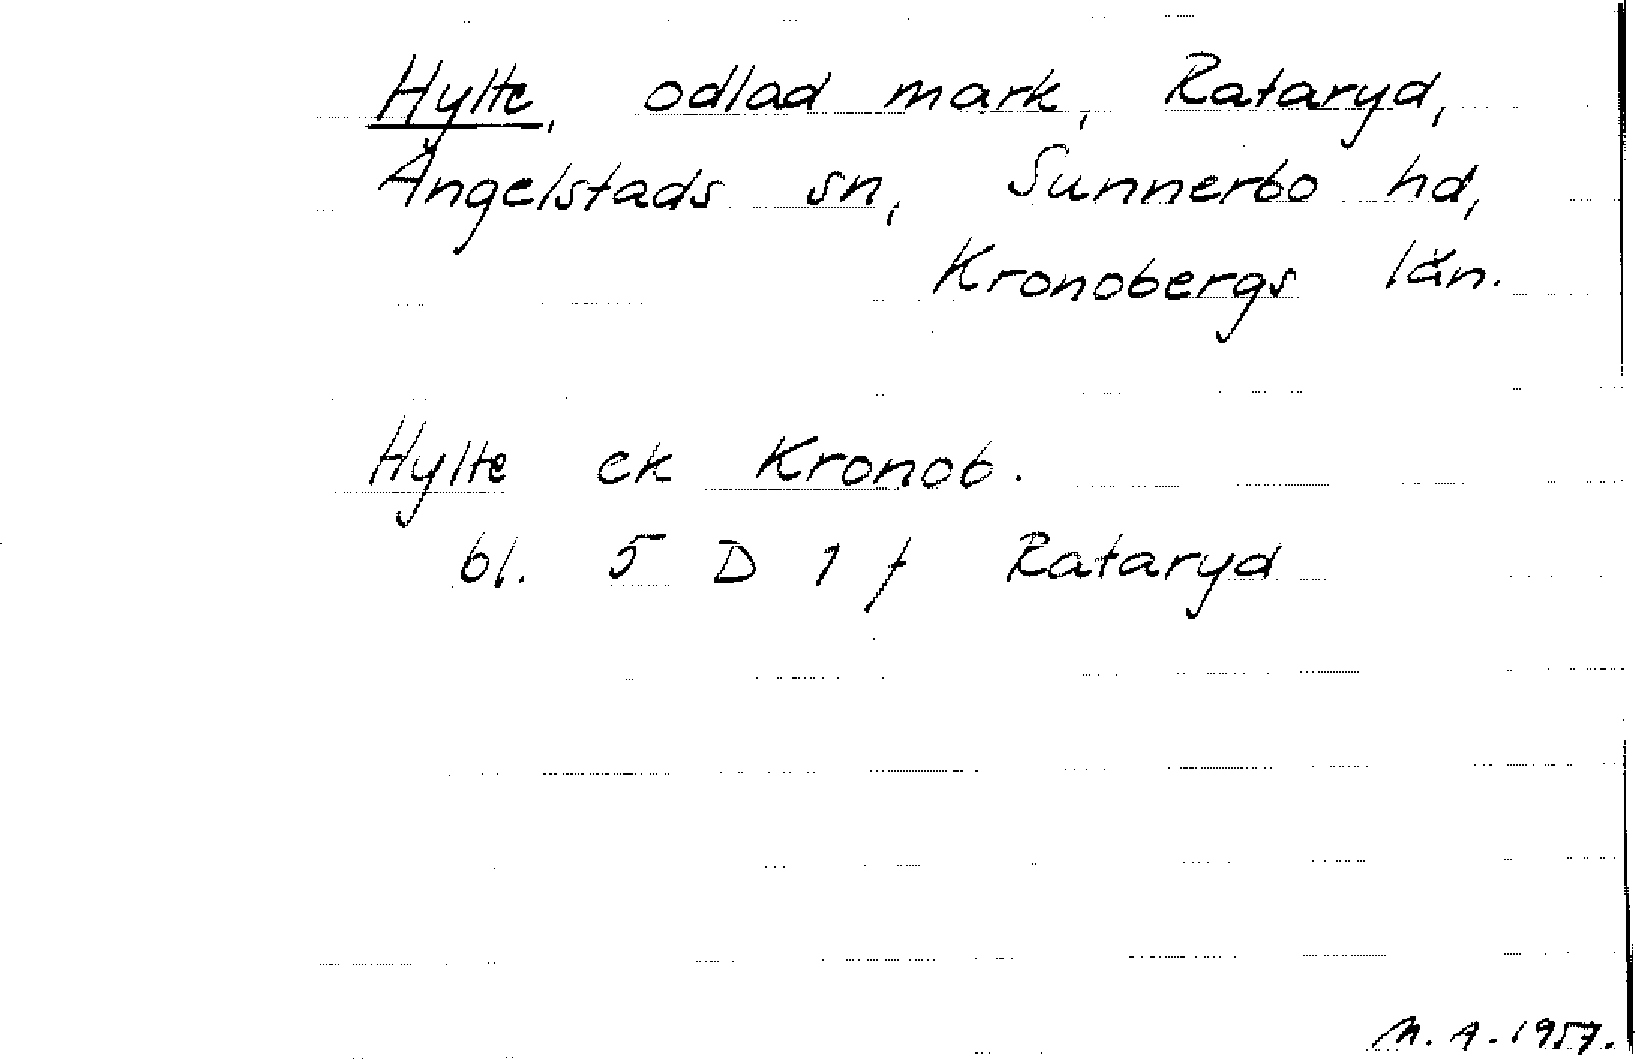 Hylte, odlad mark, Rataryd,
Ångelstads sn, Sunnerbo hd,
Kronobergs län.
Hylte ek Kronob.
bl. 5 D 1 f Rataryd
M. A. 1957.